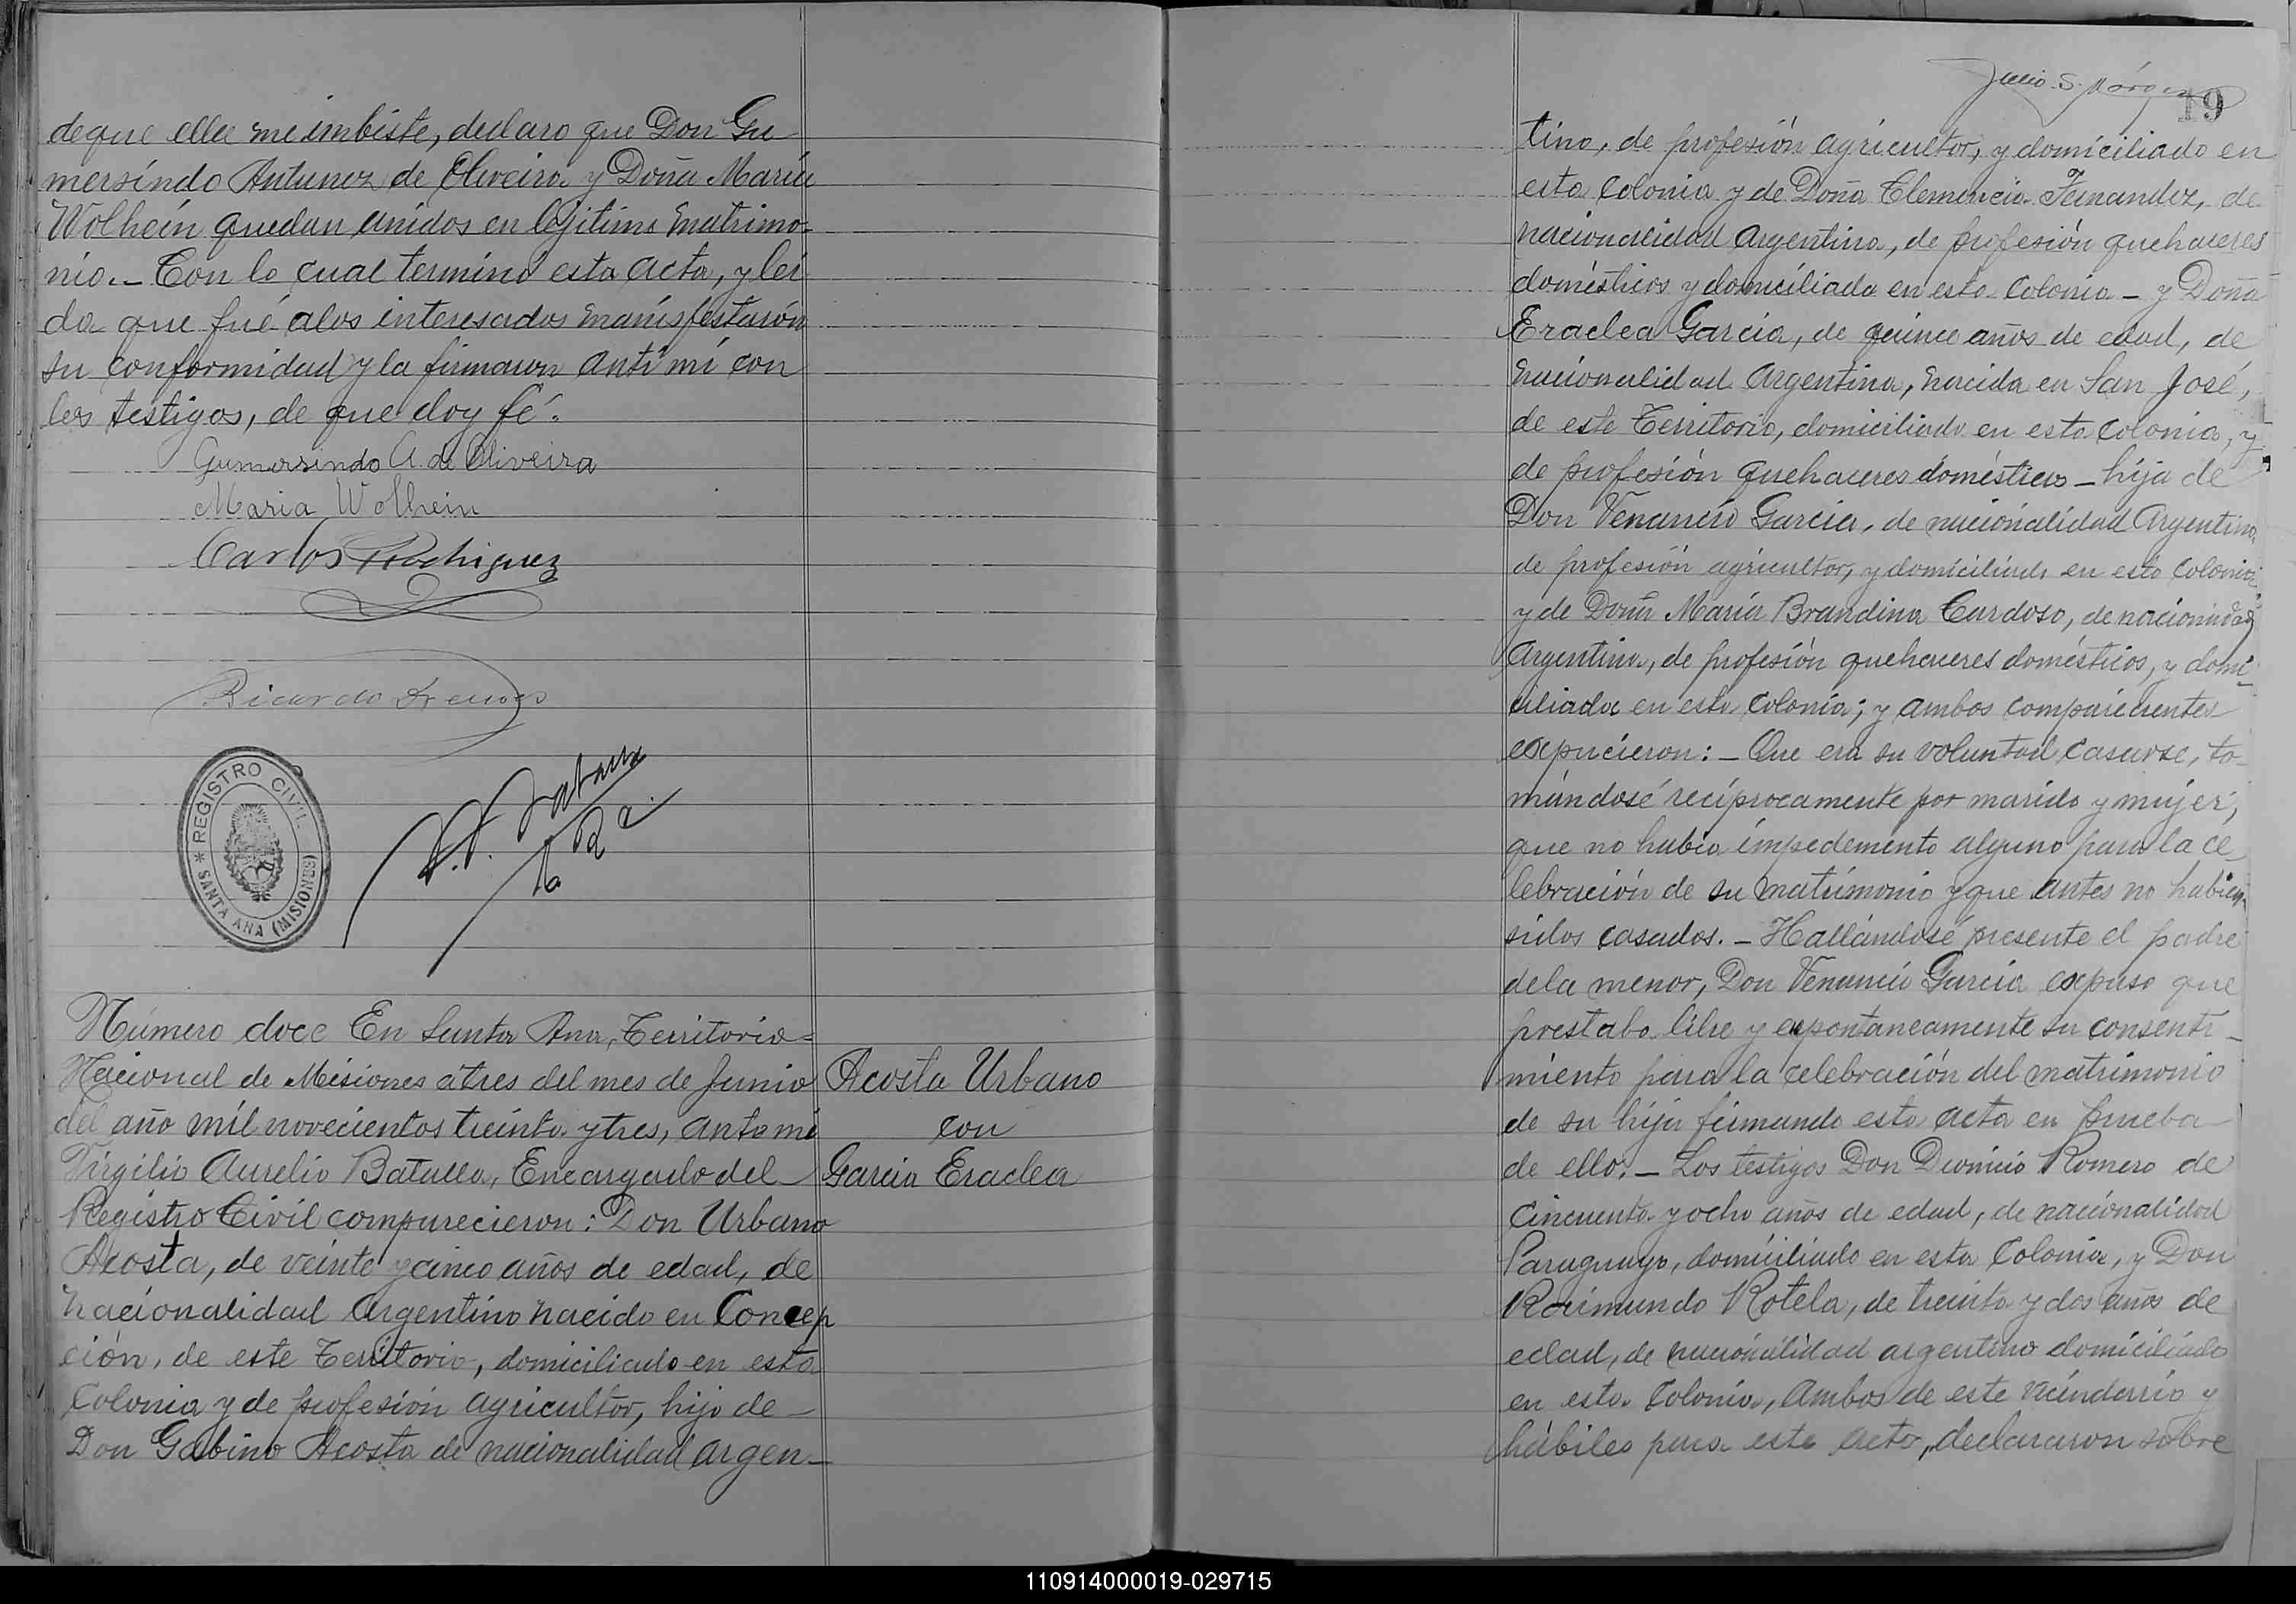 deque ella me imbiste, declaro que Don Gu
mersindo Antunez de Oliveira y Doña María
Wolhein quedan unidos en legitimo matrimo-
nio.- Con lo cual terminó esta acta, y lei
da que fué alos interesados manisfestarón
su conformidad y la firmaron ante mí con
los testigos, de que doy fé.
Gumersindo A. de Oliveira
Maria Wolhein
Carlos Rodriguez
Ricardo
REGISTRO CIVIL
* SANTA ANA (MISIONES)
Número doce En Santa Ana, Territorio-
Nacional de Misiones átres del mes de Junio
del año mil novecientos treinta ytres, ante mi
Virgilio Aurelio Batalla, Encargado del
Registro Civil comparecieron: Don Urbano
Acosta, de veinte ycinco años de edad, de
nacionalidad Argentino nacido en Concep
ción, de este Territorio, domiciliado en esta
Colonia y de profesión agricultor, hijo de-
Don Gabino Acosta de nacionalidad argen-
Acosta Urbano
con
Garcia Eraclea
Julio S.
19
tina, de profesión agricultor, y domiciliado en
esta Colonia y de Doña Clemencia Fernandez, de
nacionalidad Argentina, de profesión quehaceres
domésticos y domiciliada en esta Colonia - y Doña
Eraclea Garcia, de quince años de edad, de
nacionalidad Argentina, nacida en San José,
de este Territorio, domiciliada en esta Colonia, y
de profesión quehaceres domésticos - hija de
Don Venancio Garcia, de nacionalidad Argentino,
de profesión agricultor, y domiciliado en esta Colonia
y de Doña María Brandina Cardoso, de nacionalidad
Argentina, de profesión quehaceres domésticos, y domi-
ciliada en esta Colonia; y ambos comparecientes
expucieron: - Que era su voluntad casarse, to-
mándosé recíprocamente por marido y mujer,
que no había impedemento alguno para la ce-
lebración de su matrimonio y que antes no habian
sidos casados. - Hallándosé presente el padre
dela menor, Don Venancio Garcia expuso que
prestaba libre y expontaneamente su consenti-
miento para la celebración del matrimonio
de su hija firmando esta acta en prueba
de ello. - Los testigos Don Dionicio Romero de
cincuenta y ocho años de edad, de nacionalidad
Paraguayo, domiciliado en esta Colonia, y Don
Raimundo Rotela, de treinta y dos años de
edad, de nacionalidad argentino domiciliado
en esta Colonia, ambos de este vecindario y
hábiles para este acto, declararon sobre
110914000019-029715